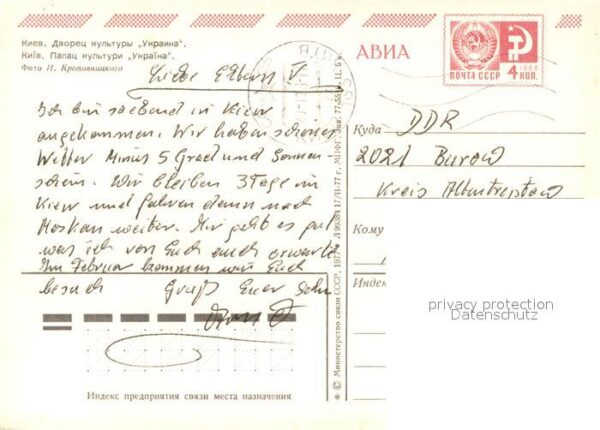 Киев. Дворец культуры „Украина“.
Київ. Палац культури „Україна“.
Фото И. Кропивницкого
АВИА
ПОЧТА СССР 4 КОП.
1966
Liebe Eltern
Ich bin soebend in Kiew
angekommen. Wir haben schönes
Wetter Minus 5 Grad und Sonnen
schein. Wir bleiben 3 Tage in
Kiew und fahren dann nach
Moskau weiter. Mir geht es gut
was ich von Euch auch erwarte
Im Februar kommen wir Euch
besuch Gruß Euer Sohn
Куда DDR
2021 Burow
Kreis Altentreptow
Кому
Индекс
privacy protection
Datenschutz
Индекс предприятия связи места назначения
* © Министерство связи СССР, 1977